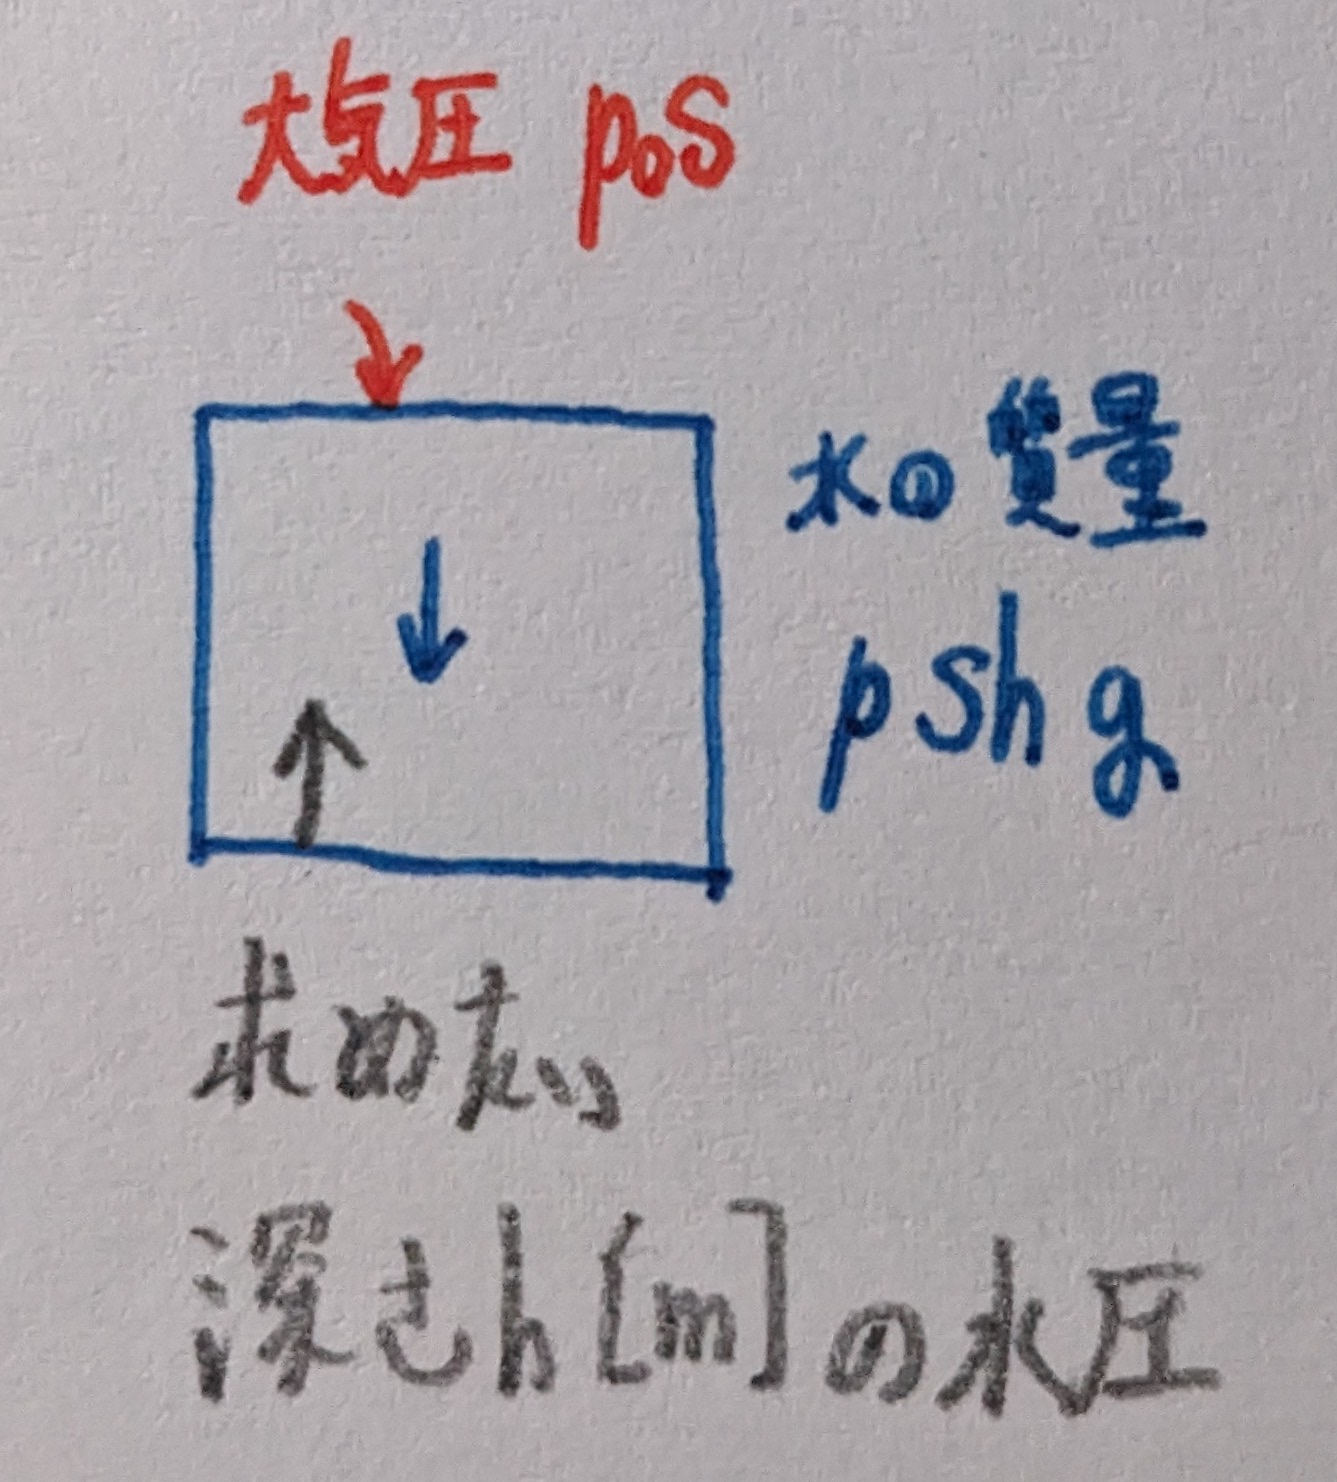 大気圧 p₀S
水の質量
ρShg
求めたい
深さh[m]の水圧